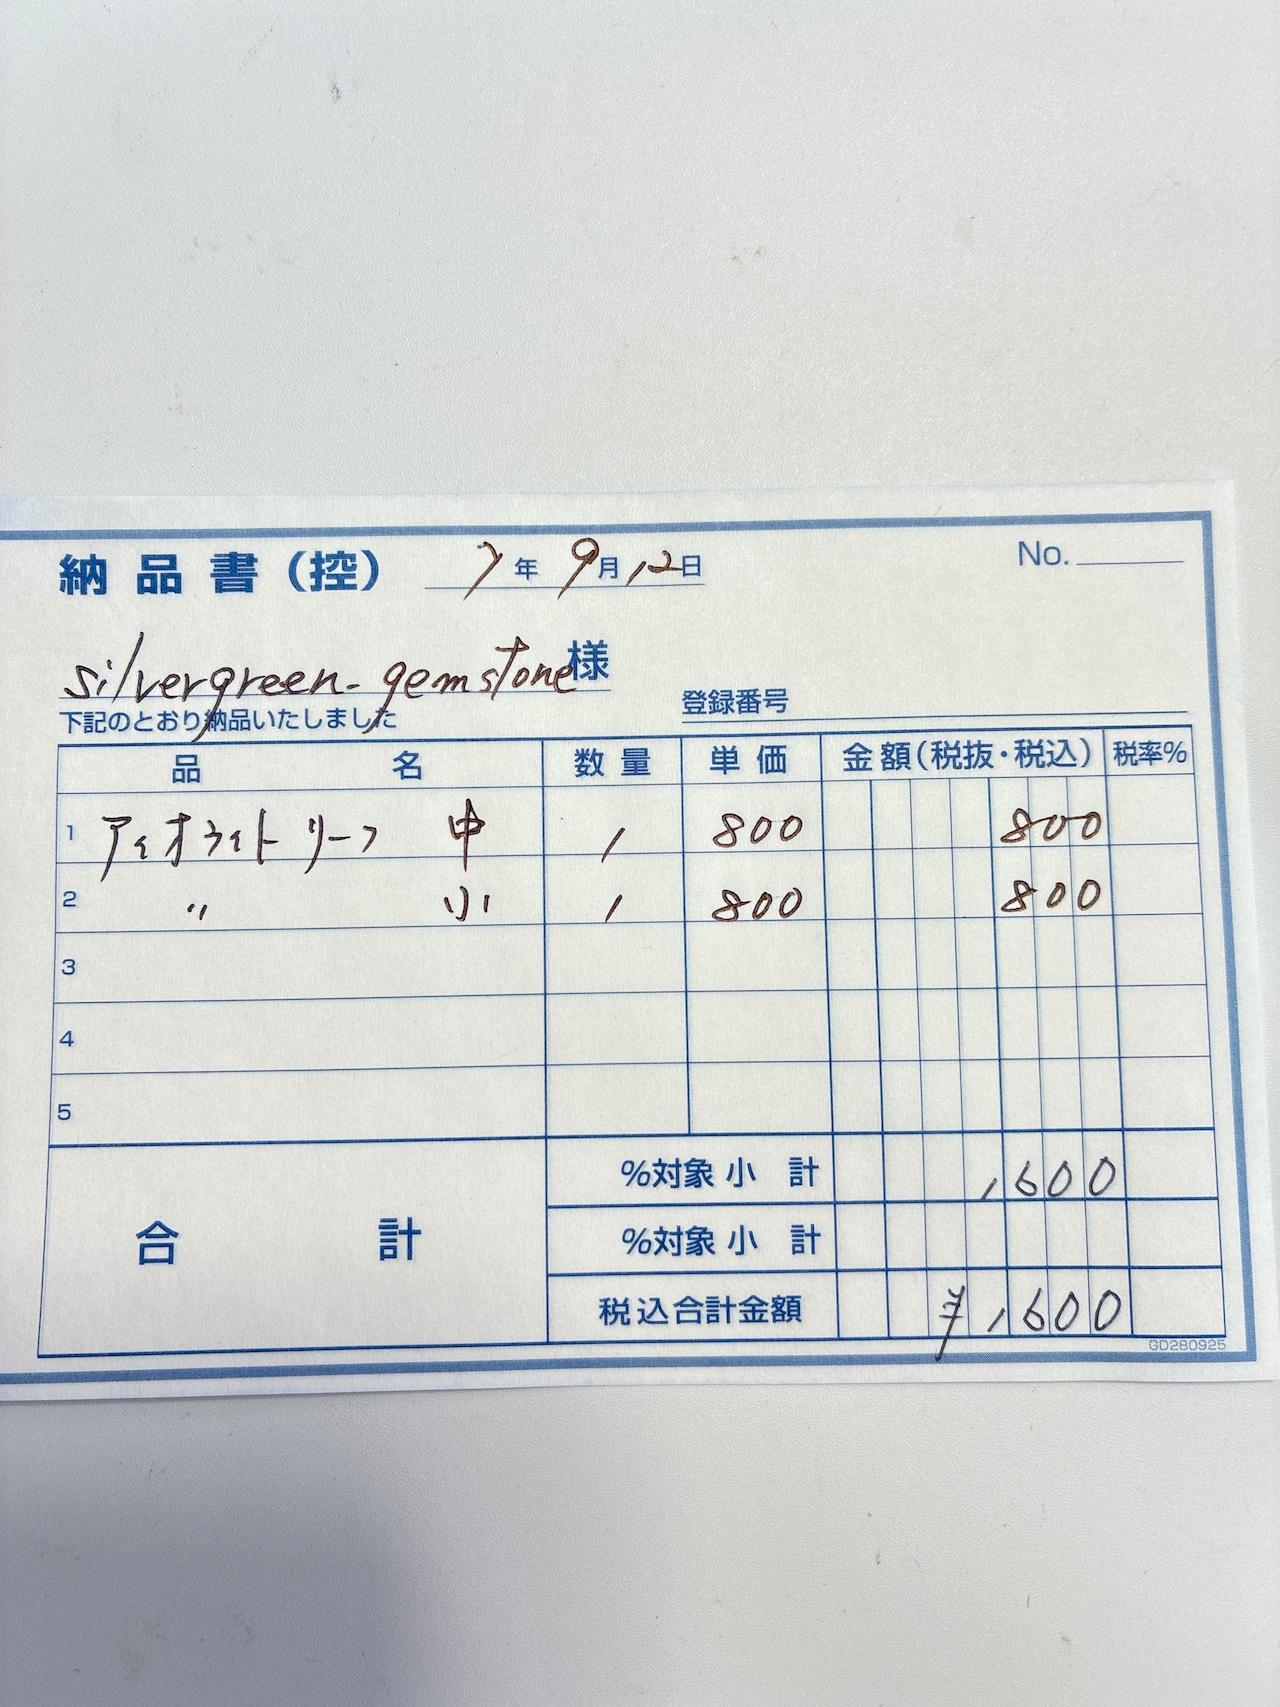 納品書(控) 7年9月12日 No.
silvergreen-gemstone様
下記のとおり納品いたしました 登録番号
品名 数量 単価 金額(税抜・税込) 税率%
1 アイオライト リーフ 中 1 800 800
2 〃 小 1 800 800
3
4
5
%対象小計 1,600
合計 %対象小計
税込合計金額 ¥1,600
GD280925